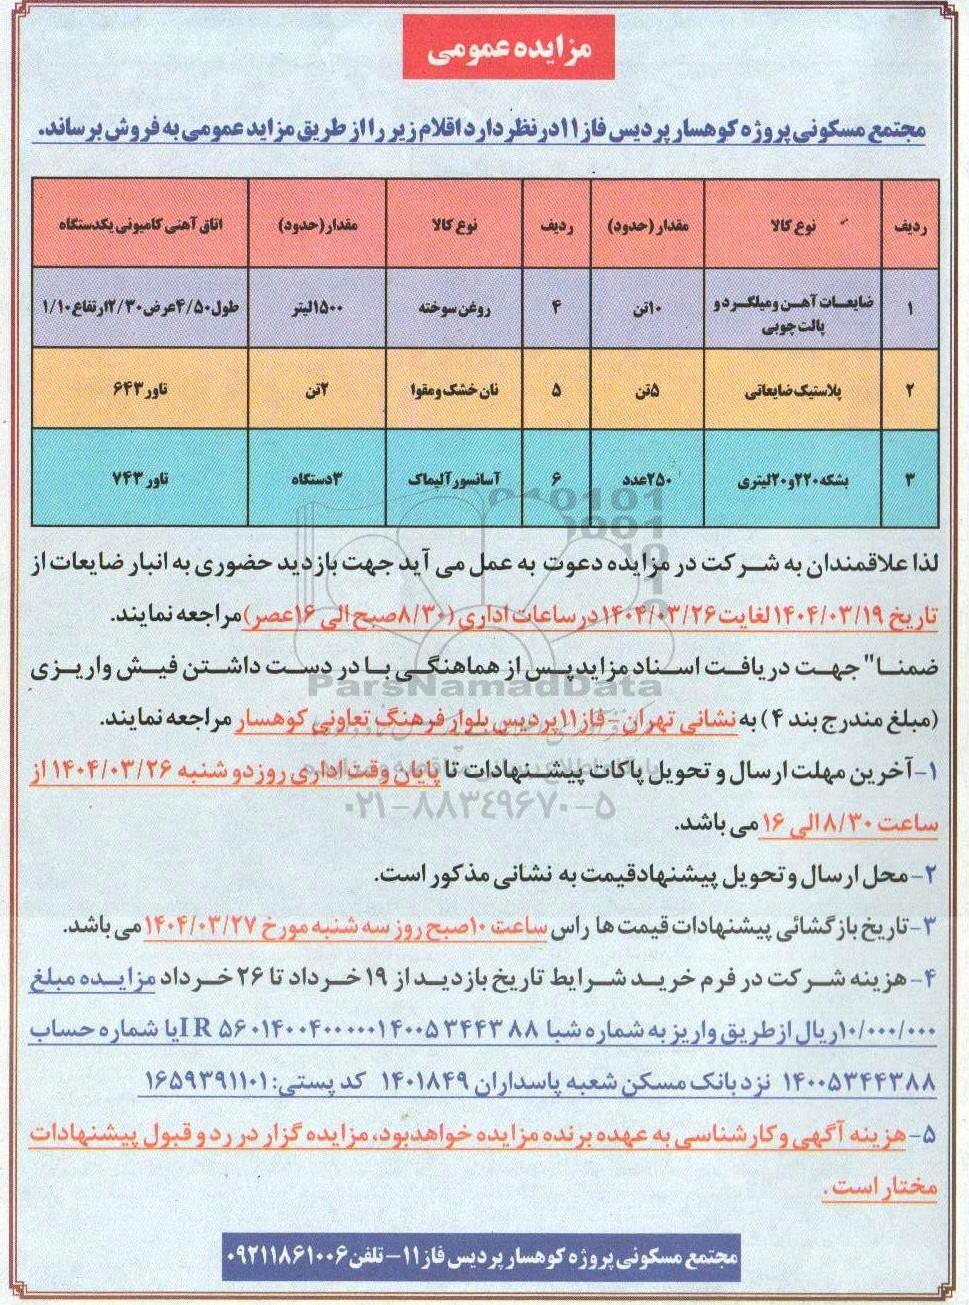 مزایده عمومی
مجتمع مسکونی پروژه کوهسار پردیس فاز ۱۱ در نظر دارد اقلام زیر را از طریق مزاید عمومی به فروش برساند.
ردیف نوع کالا مقدار (حدود) ردیف نوع کالا مقدار (حدود) اتاق آهنی کامیونی یکدستگاه
۱ ضایعات آهن و میلگرد و پالت چوبی ۱۰تن ۴ روغن سوخته ۱۵۰۰لیتر طول۴/۵۰عرض۲/۳۰ارتفاع۱/۱۰
۲ پلاستیک ضایعاتی ۵تن ۵ نان خشک و مقوا ۲تن تاور ۶۴۳
۳ بشکه۲۲۰و۲۰لیتری ۲۵۰عدد ۶ آسانسور آلیماک ۳دستگاه تاور ۷۴۳
لذا علاقمندان به شرکت در مزایده دعوت به عمل می آید جهت بازدید حضوری به انبار ضایعات از
تاریخ ۱۴۰۴/۰۳/۱۹ لغایت ۱۴۰۴/۰۳/۲۶ در ساعات اداری (۸/۳۰صبح الی ۱۶عصر) مراجعه نمایند.
ضمنا" جهت دریافت اسناد مزاید پس از هماهنگی با در دست داشتن فیش واریزی
(مبلغ مندرج بند ۴) به نشانی تهران - فاز ۱۱ پردیس بلوار فرهنگ تعاونی کوهسار مراجعه نمایند.
۱-آخرین مهلت ارسال و تحویل پاکات پیشنهادات تا پایان وقت اداری روز دو شنبه ۱۴۰۴/۰۳/۲۶ از
ساعت ۸/۳۰ الی ۱۶ می باشد.
۲-محل ارسال و تحویل پیشنهاد قیمت به نشانی مذکور است.
۳-تاریخ بازگشائی پیشنهادات قیمت ها راس ساعت ۱۰صبح روز سه شنبه مورخ ۱۴۰۴/۰۳/۲۷ می باشد.
۴- هزینه شرکت در فرم خرید شرایط تاریخ بازدید از ۱۹ خرداد تا ۲۶ خرداد مزایده مبلغ
۱۰/۰۰۰/۰۰۰ریال از طریق واریز به شماره شبا IR ۵۶۰۱۴۰۰۴۰۰۰۰۰۱۴۰۰۵۳۴۴۳۸۸ یا شماره حساب
۱۴۰۰۵۳۴۴۳۸۸ نزد بانک مسکن شعبه پاسداران ۱۴۰۱۸۴۹ کد پستی: ۱۶۵۹۳۹۱۱۰۱
۵-هزینه آگهی و کارشناسی به عهده برنده مزایده خواهد بود، مزایده گزار در رد و قبول پیشنهادات
مختار است.
مجتمع مسکونی پروژه کوهسار پردیس فاز ۱۱- تلفن ۰۹۲۱۱۸۶۱۰۰۶
ParsNamadData
۰۲۱-۸۸۳۴۹۶۷۰-۵